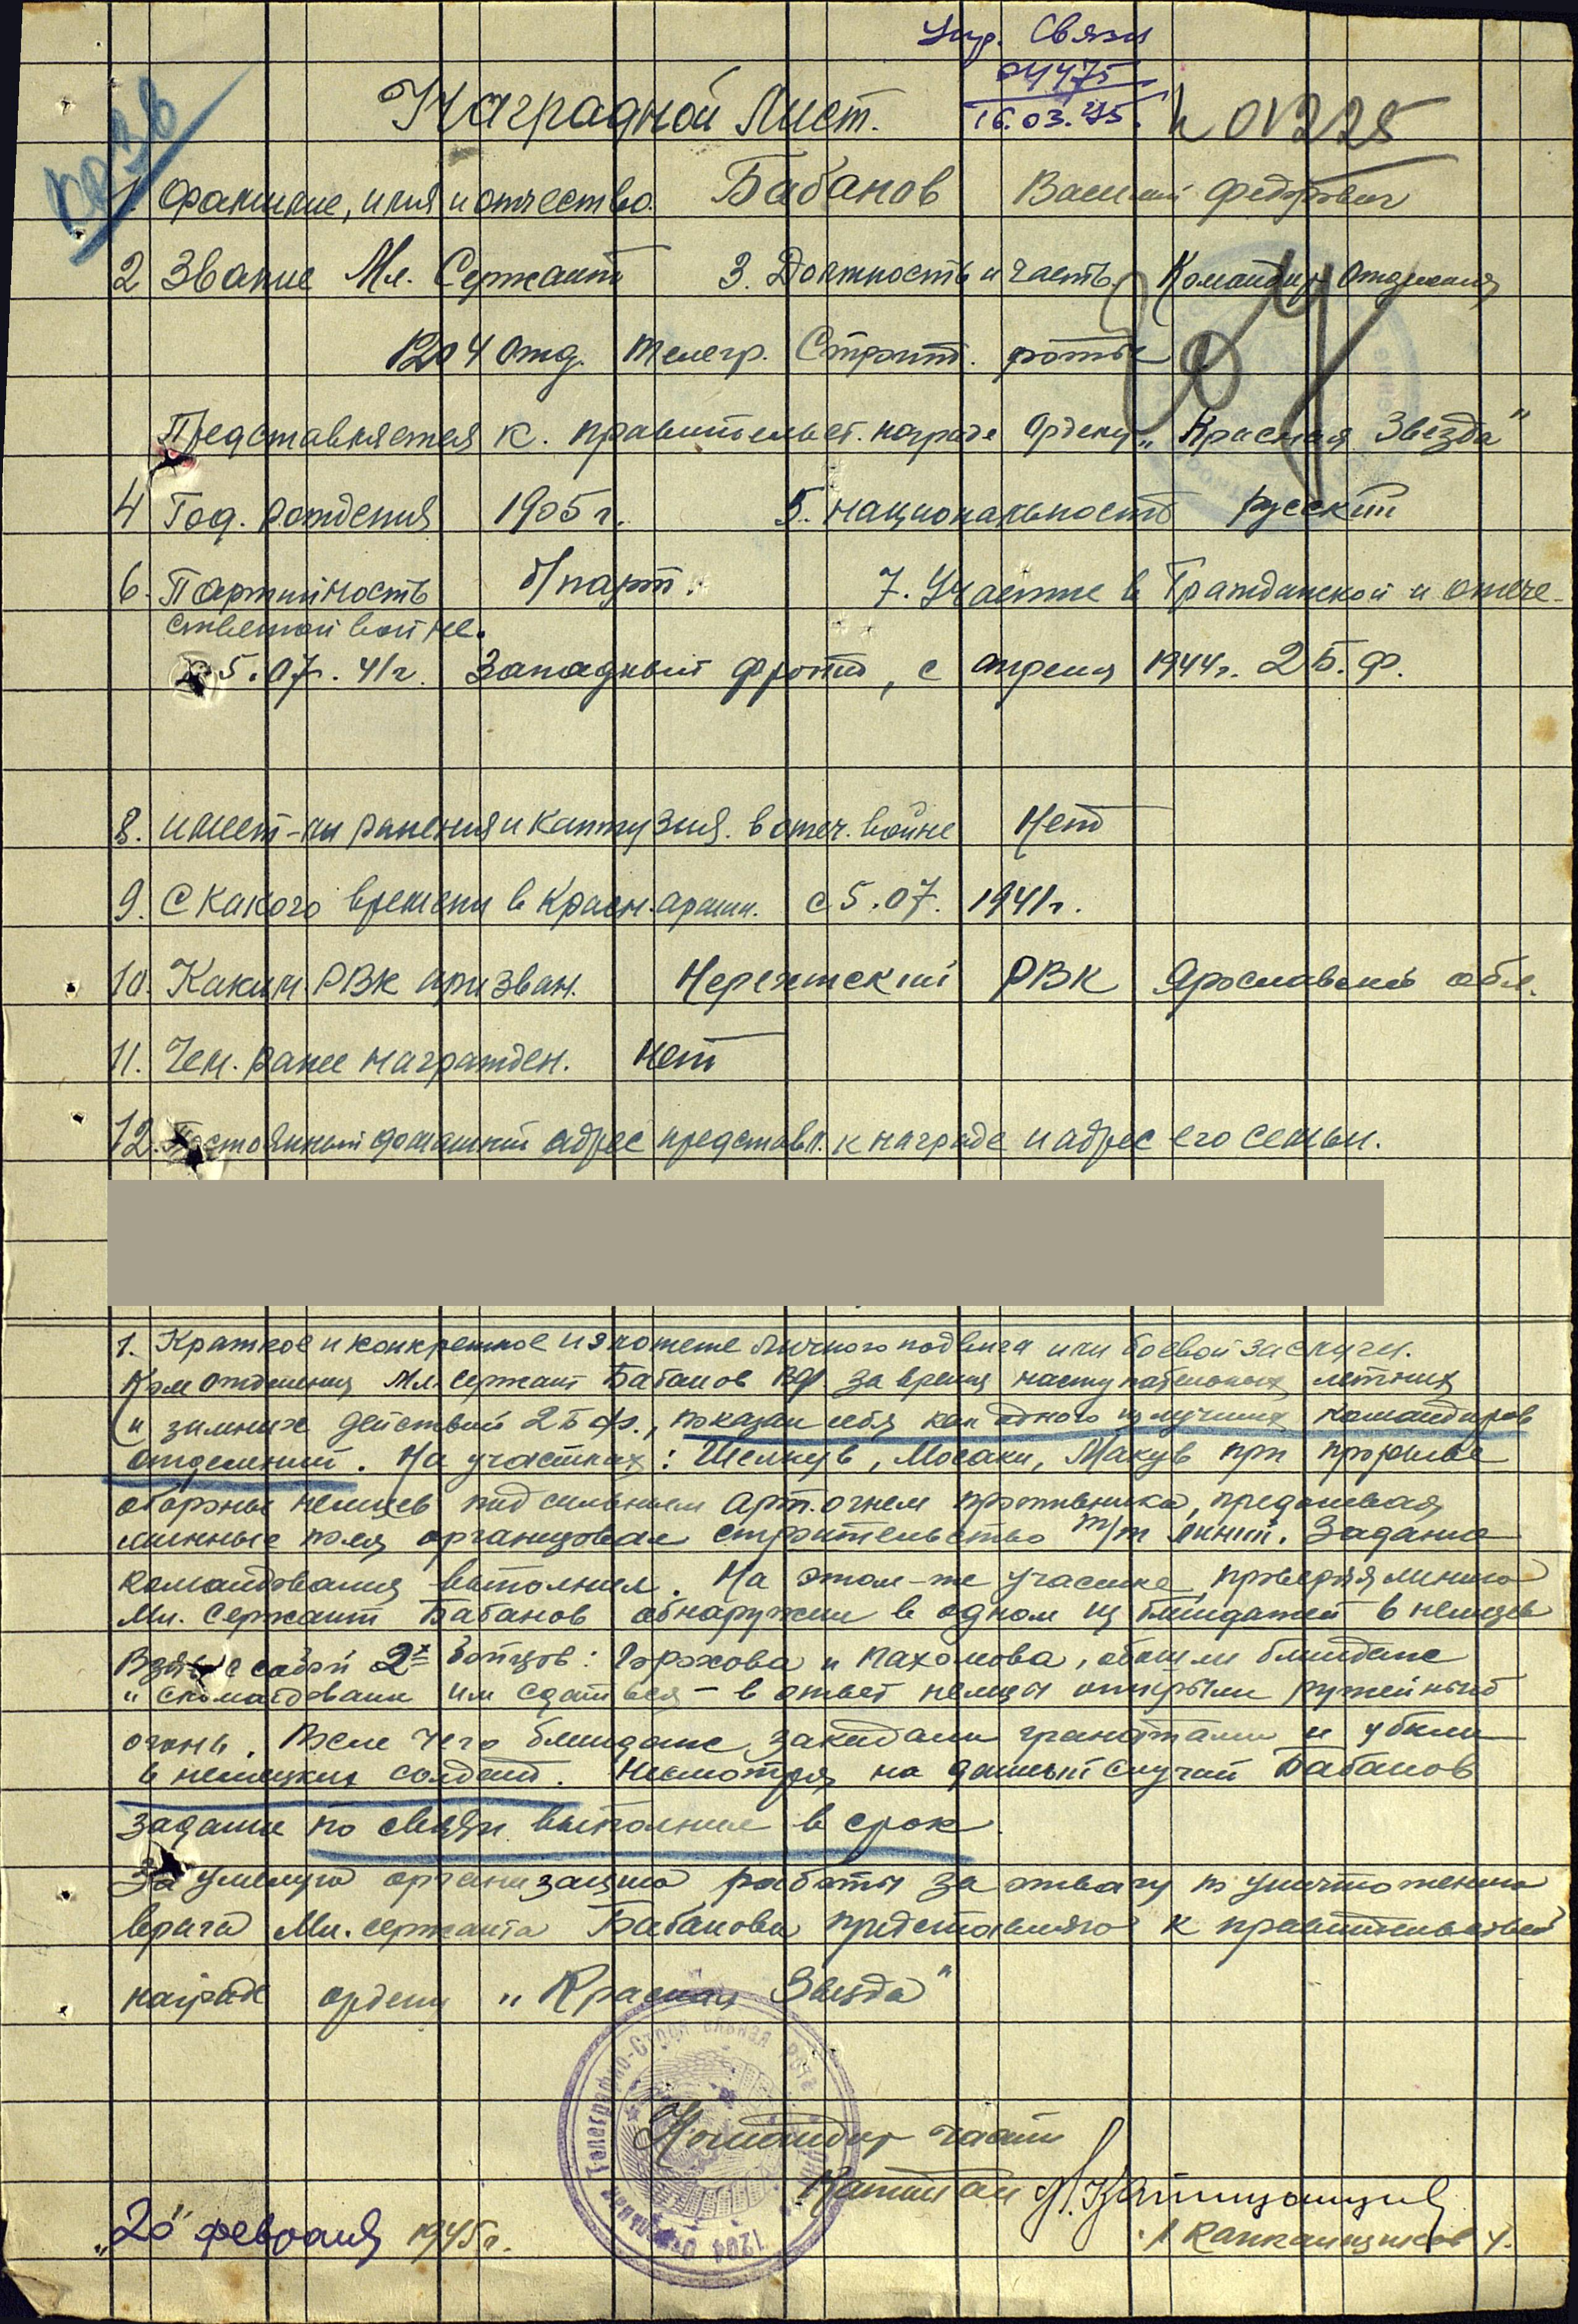 Упр. Связи
04475
16.03.45.
Наградной Лист.
1. Фамилие, имя и отчество. Бабанов Василий Федорович
2 Звание Мл. Сержант 3. Должность и часть. Командир отделения
1204 отд. телегр. Строит. роты
Представляется к. правительст. награде ордену „Красная Звезда"
4 Год. рождения 1905 г. 5. национальность русский
6. Партийность б/парт. 7. Участие в Гражданской и отече-
ственной войне.
с 5.07.41г. Западный фронт, с апреля 1944г. 2 Б.Ф.
8. имеет-ли ранения и контузия. в отеч. войне Нет
9. С какого времени в Красн. армии. с 5.07. 1941г.
10. Каким РВК призван. Нерехтский РВК Ярославской обл.
11. Чем. ранее награжден. нет
12. Постоянный домашний адрес представл. к награде и адрес его семьи.
1. Краткое и конкретное изложение личного подвига или боевой заслуги.
Ком отделения Мл. сержант Бабанов ВФ за время наступательных летних
и зимних действий 2 Б Ф., показал себя как одного из лучших командиров
отделений. На участках: Шелкув, Мосаки, Макув при прорыве
обороны немцев под сильным арт. огнем противника, преодолевая
минные поля организовал строительство т/т линий. Задание
командования выполнил. На этом-же участке, проверяя линию
Мл. Сержант Бабанов обнаружил в одном из блиндажей 6 немцев
Взяв с собой 2х бойцов: Горохова и Пахомова, обошли блиндаж
и скомандовали им сдаться – в ответ немцы открыли ружейный
огонь. После чего блиндаж закидали гранатами и убили
6 немецких солдат. Несмотря на данный случай Бабанов
задание по связи выполнил в срок.
За умелую организацию работы за отвагу по уничтожению
врага Мл. сержанта Бабанова представляю к правительственной
награде ордену „Красная Звезда"
Командир части
Капитан
"20" февраля 1945г.